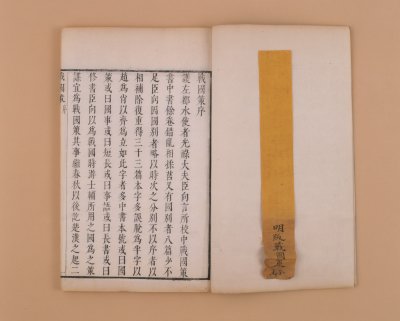 戰國策序
護左都水使者光祿大夫臣向言所校中戰國策
書中書餘卷錯亂相糅莒又有國別者八篇少不
足臣向因國別者略以時次之分別不以序者以
相補除復重得三十三篇本字多誤脫爲半字以
趙爲肖以齊爲立如此字者多中書本號或曰國
策或曰國事或曰短長或曰事語或曰長書或曰
修書臣向以爲戰國時游士輔所用之國爲之策
謀宜爲戰國策其事繼春秋以後訖楚漢之起二
戰國策序
明版戰國